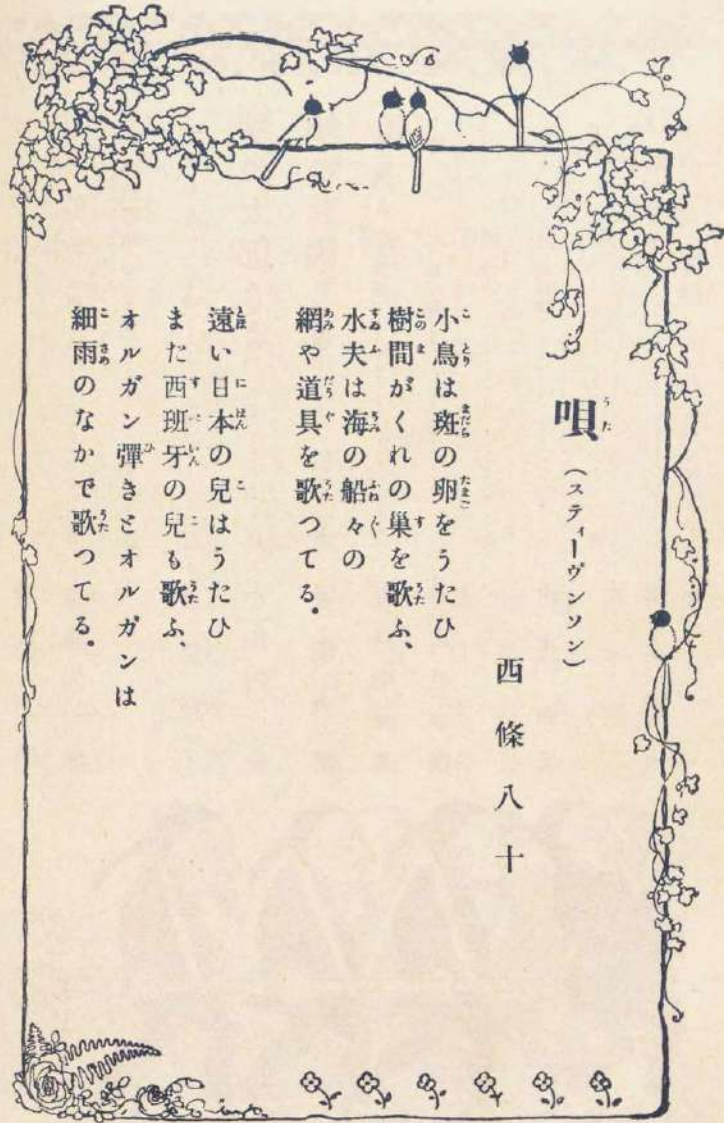 唄 (スティーヴンソン)
西條八十
小鳥は斑の卵をうたひ
樹間がくれの巣を歌ふ、
水夫は海の船々の
網や道具を歌つてる。
遠い日本の兒はうたひ
また西班牙の兒も歌ふ、
オルガン彈きとオルガンは
細雨のなかで歌つてる。